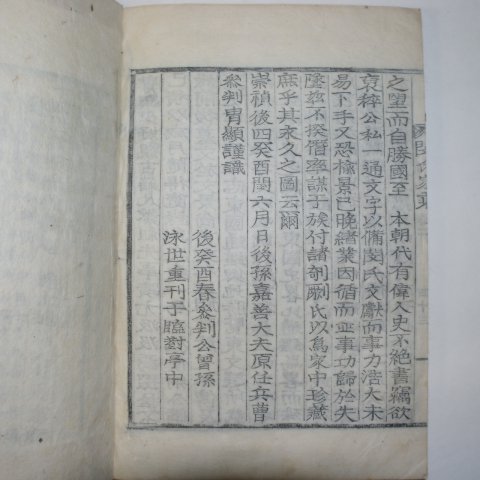 之望而自勝國至 本朝代有偉人史不絶書竊欲
裒稡公私一通文字以備閔氏文獻而事力浩大未
易下手又恐楡景已晩緒業因循而並事功歸於失
墜玆不揆僭率謀于族付諸剞劂氏以爲家中珍藏
庶乎其永久之圖云爾
崇禎後四癸酉閏六月日後孫嘉善大夫原任兵曹
參判冑顯謹識
後癸酉春參判公曾孫
泳世重刊于臨對亭中